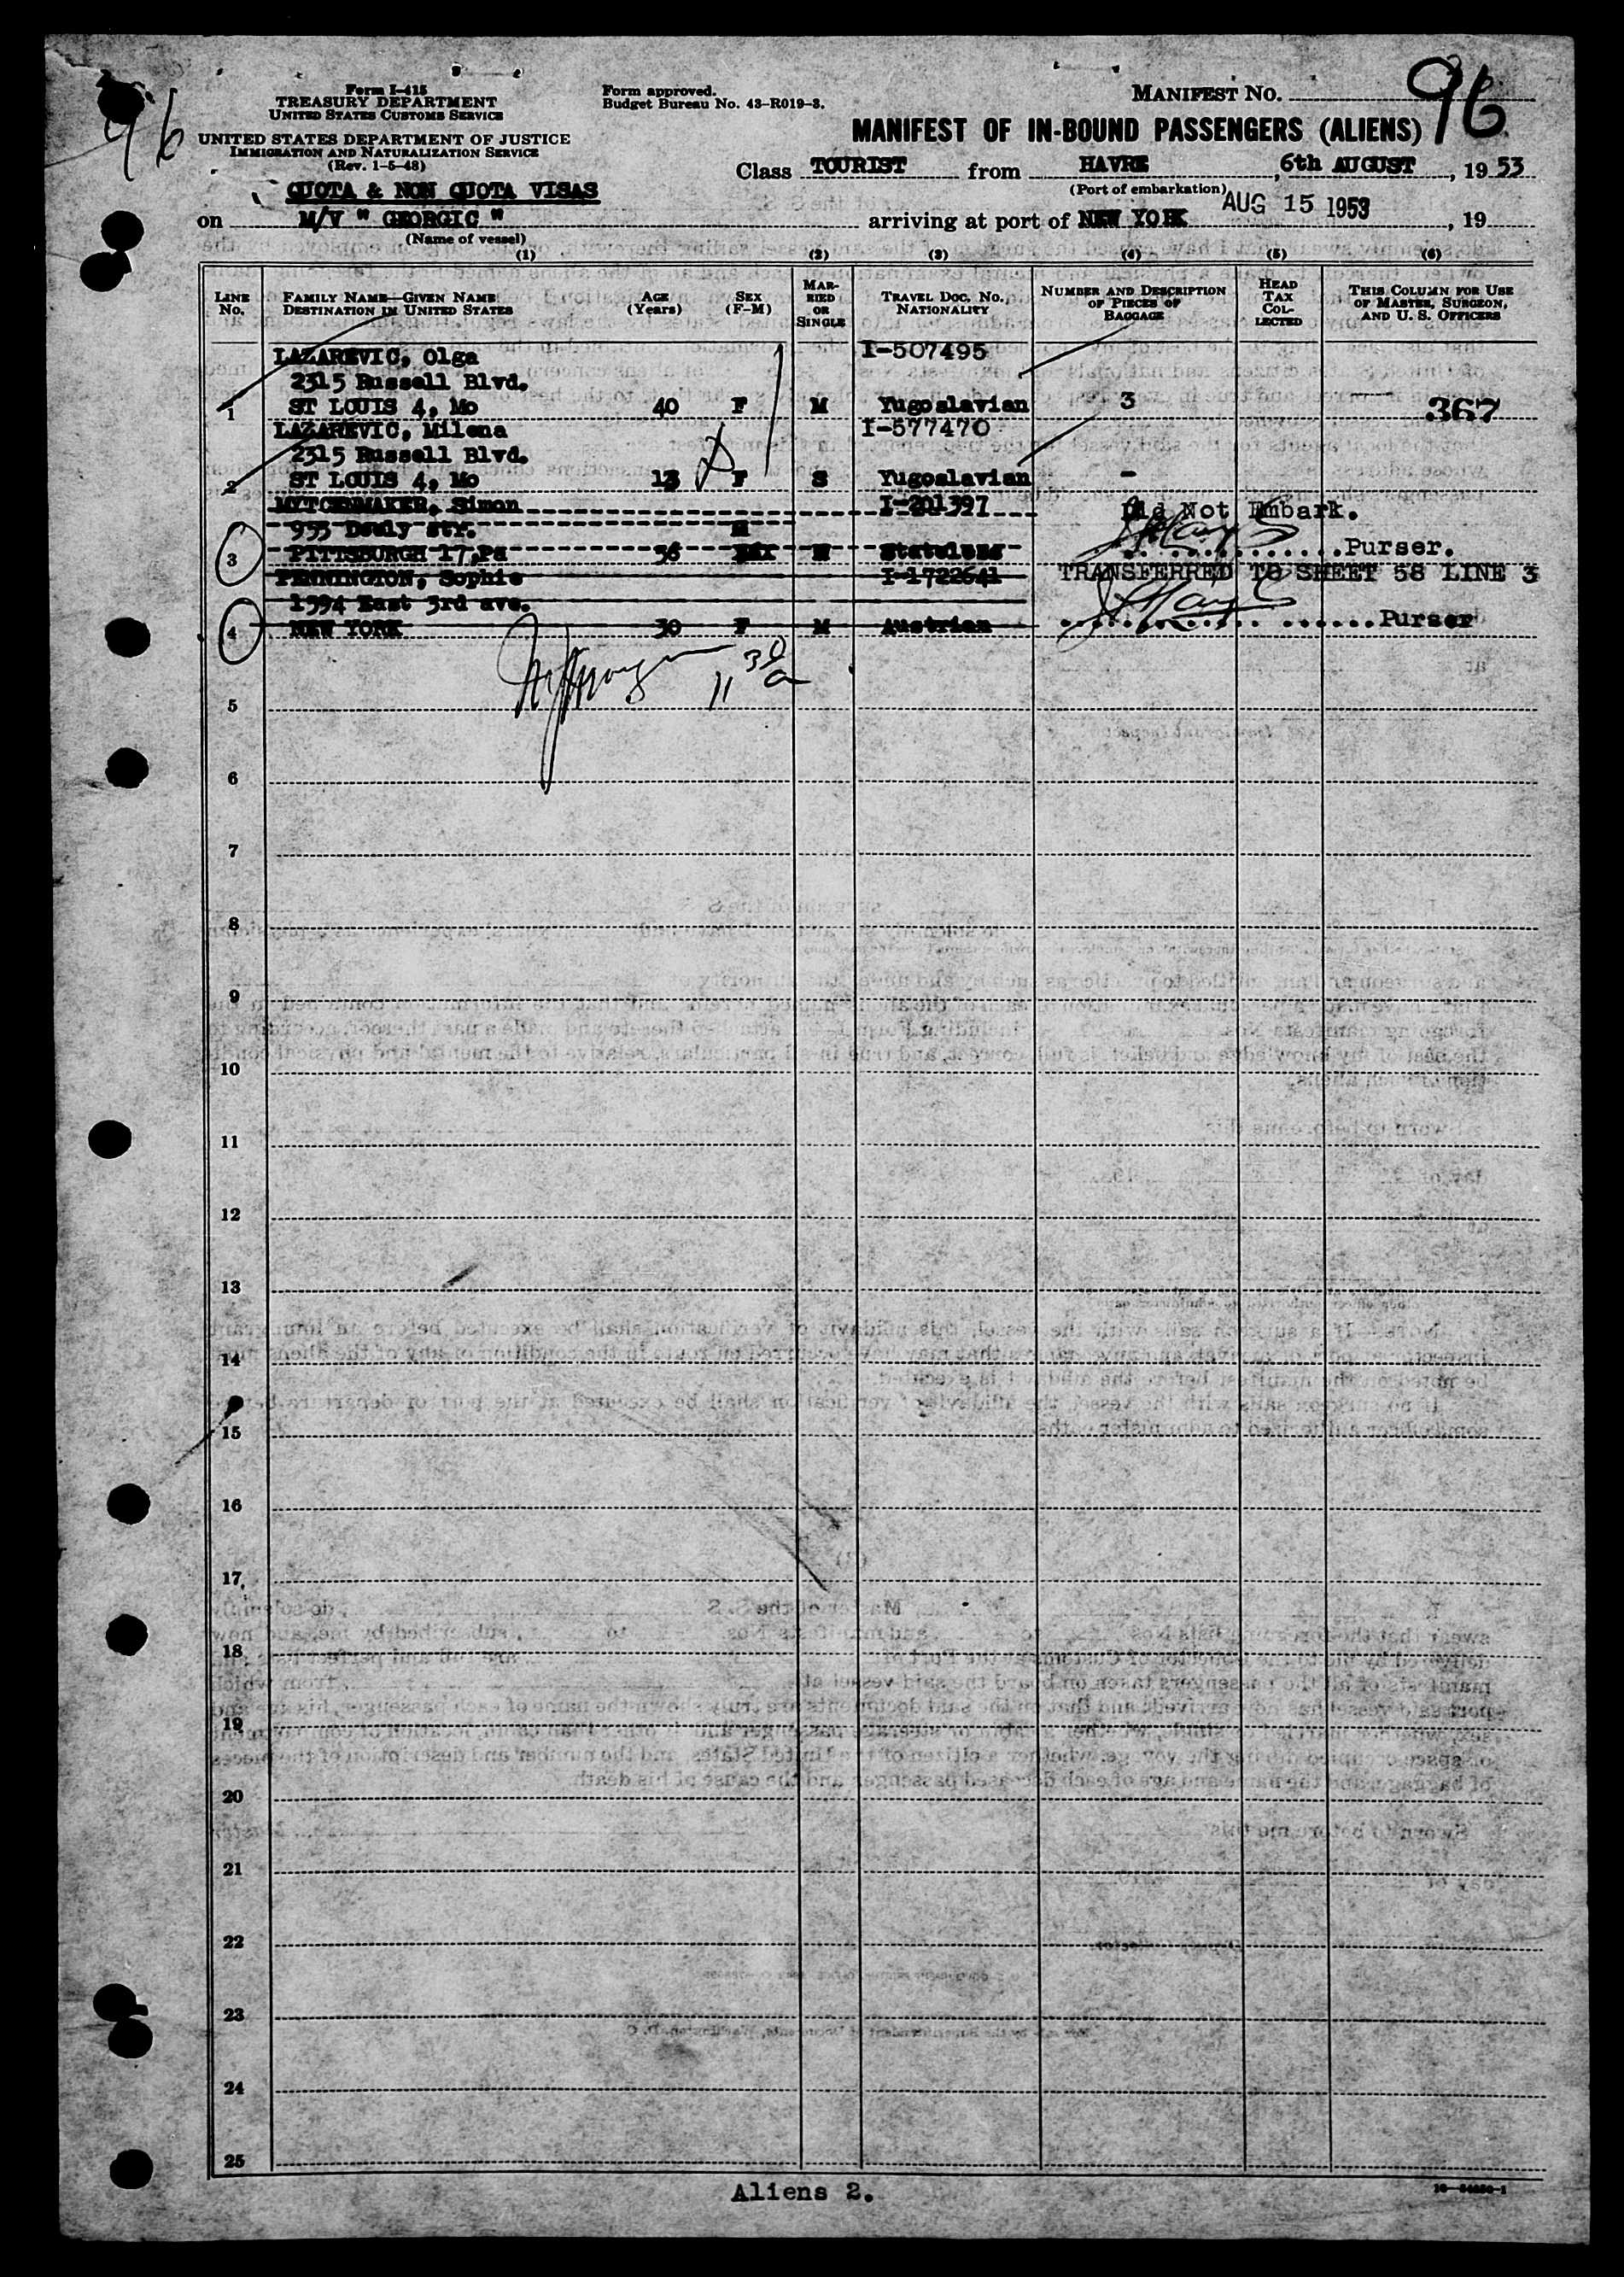 96
96
Form I-415
TREASURY DEPARTMENT
UNITED STATES CUSTOMS SERVICE
UNITED STATES DEPARTMENT OF JUSTICE
IMMIGRATION AND NATURALIZATION SERVICE
(Rev. 1-5-48)
Form approved.
Budget Bureau No. 43-R019-3.
MANIFEST NO.
MANIFEST OF IN-BOUND PASSENGERS (ALIENS)
Class TOURIST from HAVRE, 6th AUGUST, 1953
(Port of embarkation)
QUOTA & NON QUOTA VISAS
on M/V " GEORGIC " arriving at port of NEW YORK AUG 15 1953, 19
(Name of vessel)
(1) (2) (3) (4) (5) (6)
LINE No. FAMILY NAME—GIVEN NAME DESTINATION IN UNITED STATES AGE (Years) SEX (F-M) MARRIED OR SINGLE TRAVEL DOC. NO. NATIONALITY NUMBER AND DESCRIPTION OF PIECES OF BAGGAGE HEAD TAX COLLECTED THIS COLUMN FOR USE OF MASTER, SURGEON, AND U. S. OFFICERS
LAZAREVIC, Olga I-507495
2315 Russell Blvd.
1 ST LOUIS 4, Mo 40 F M Yugoslavian 3 367
LAZAREVIC, Milena I-577470
2315 Russell Blvd.
2 ST LOUIS 4, Mo 13 F S Yugoslavian -
Simon I-201397 Did Not Embark.
935 str. M
3 PITTSBURGH 17, Pa 56 M Stateless Purser.
PENNINGTON, Sophie I-1722641 TRANSFERRED TO SHEET 58 LINE 3
1394 East 3rd ave.
4 NEW YORK 30 F M Austrian Purser
11 30 a
5
6
7
8
9
10
11
12
13
14
15
16
17
18
19
20
21
22
23
24
25
Aliens 2.